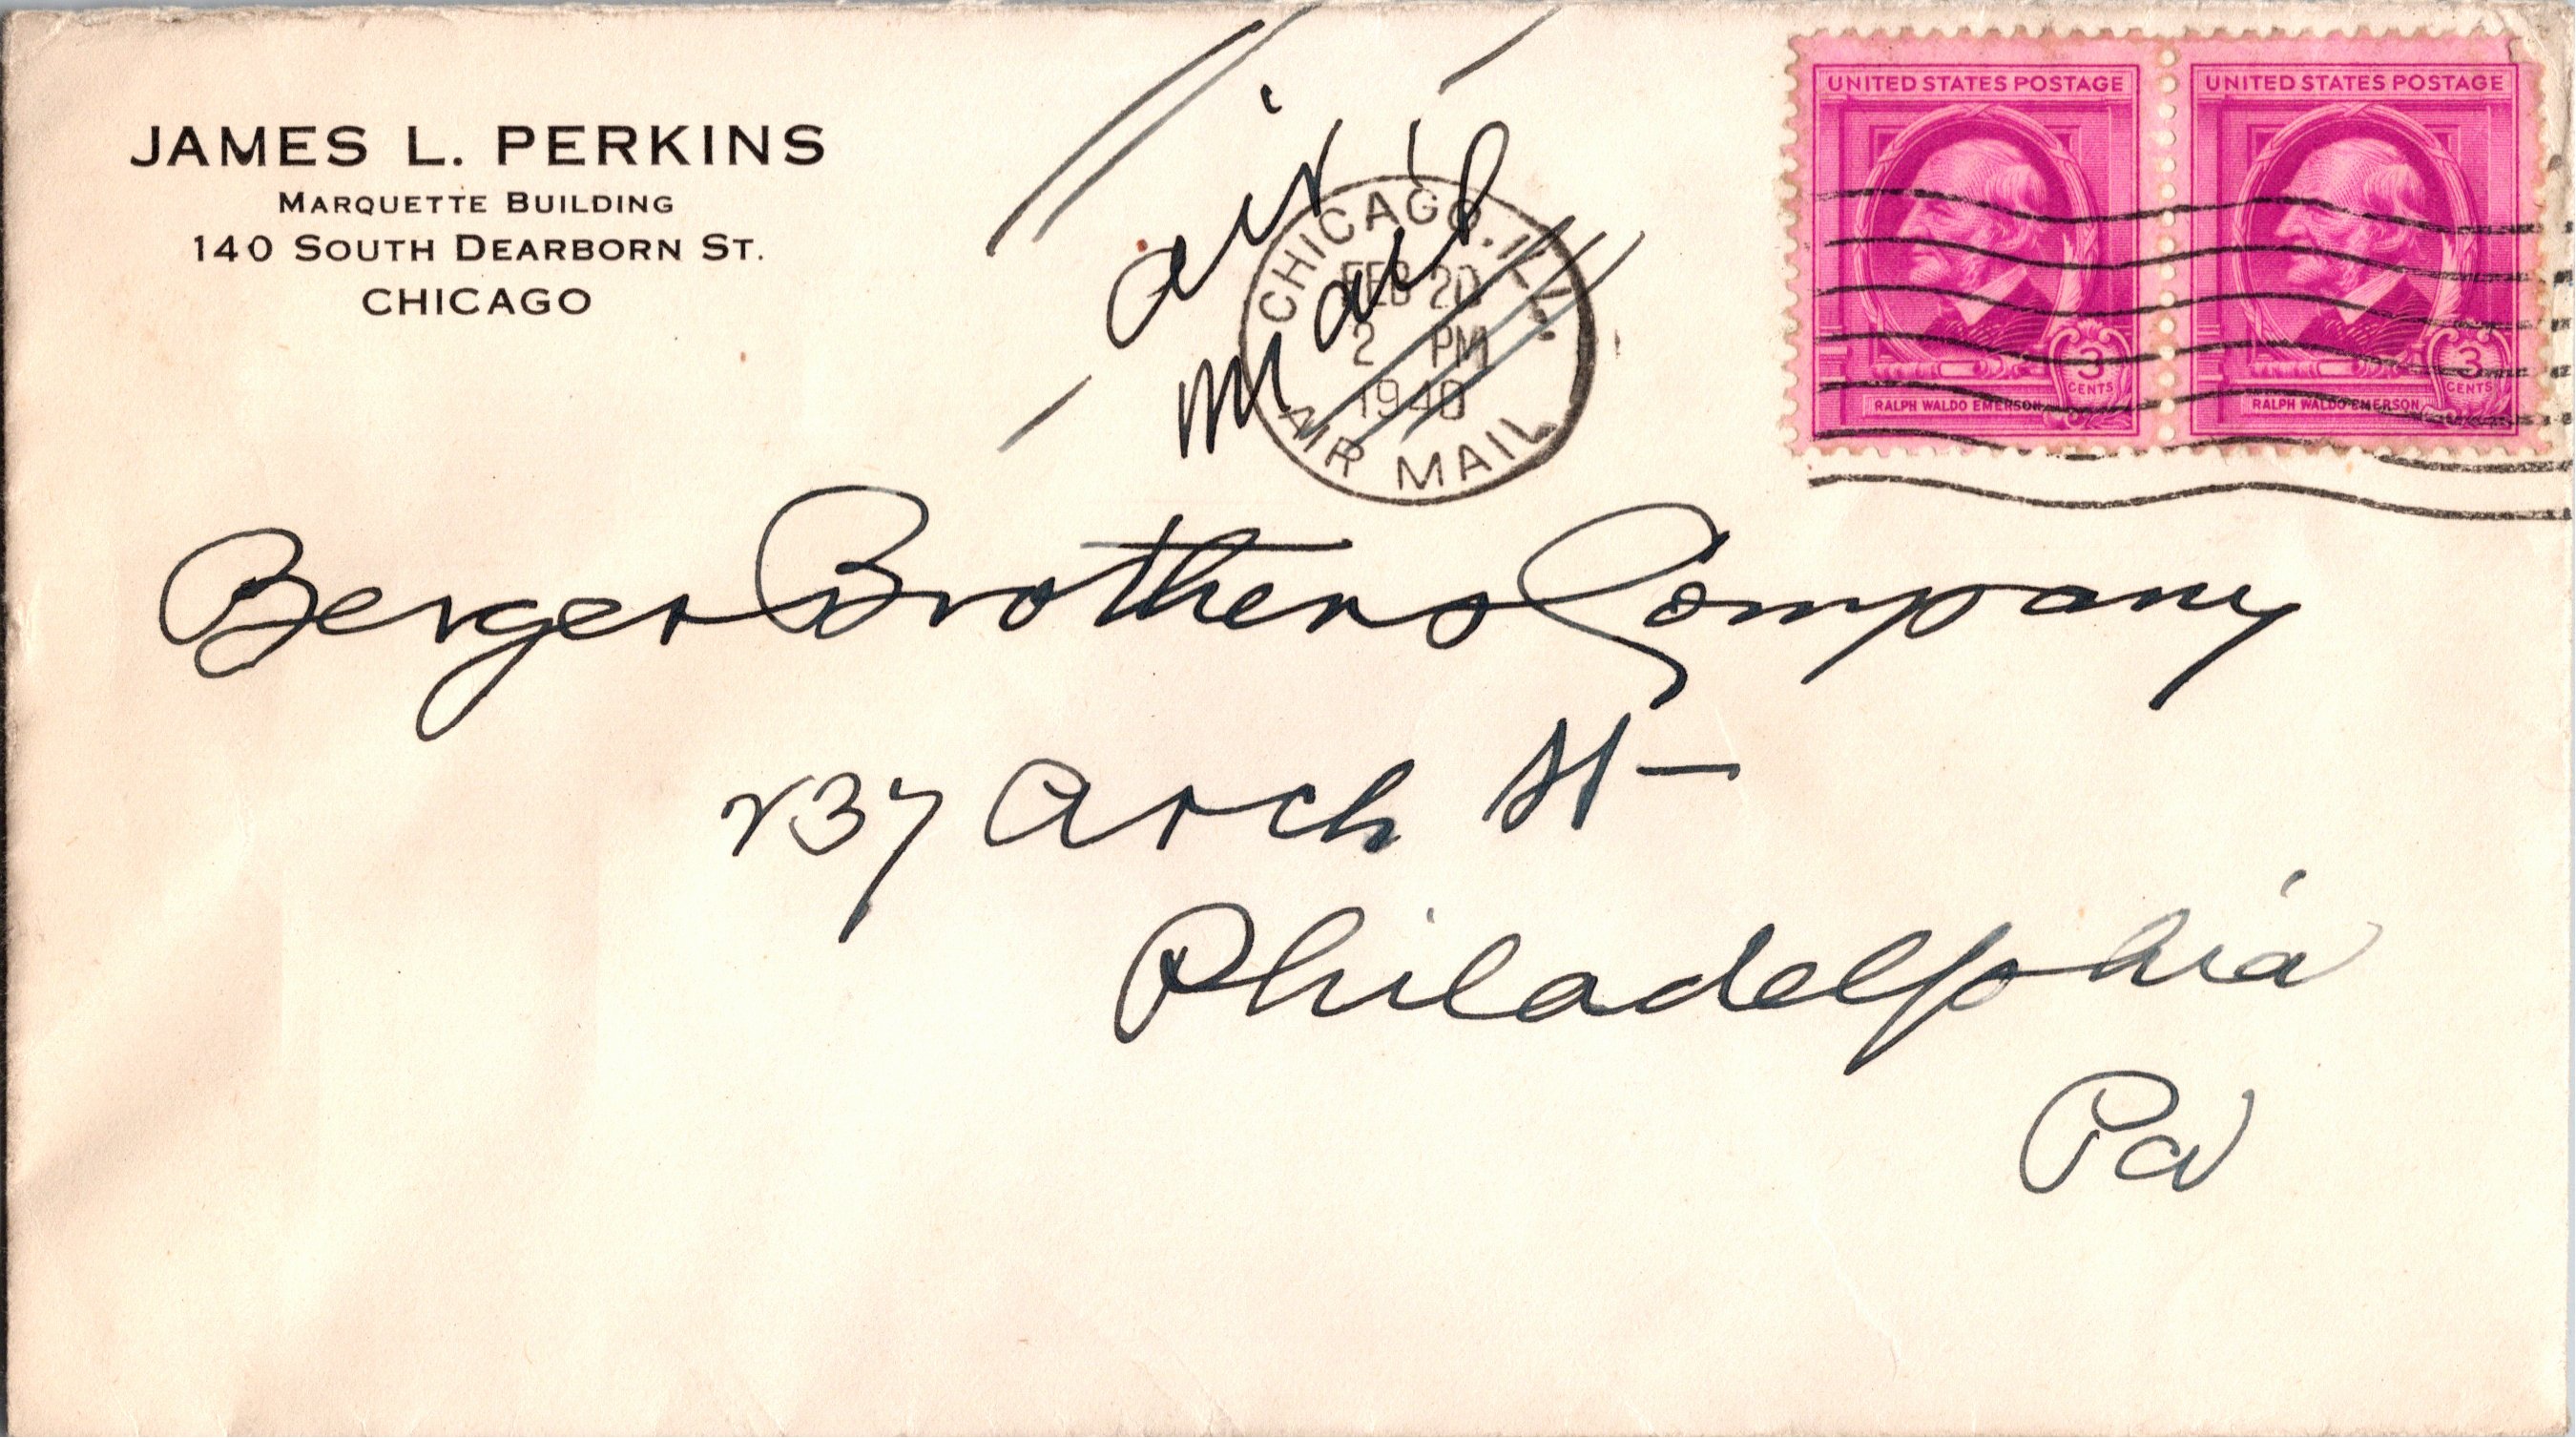 JAMES L. PERKINS
MARQUETTE BUILDING
140 SOUTH DEARBORN ST.
CHICAGO
air
mail
CHICAGO, ILL.
FEB 20
2 PM
1940
AIR MAIL
UNITED STATES POSTAGE
3
CENTS
RALPH WALDO EMERSON
UNITED STATES POSTAGE
3
CENTS
RALPH WALDO EMERSON
Berger Brothers Company
237 Arch St-
Philadelphia
Pa